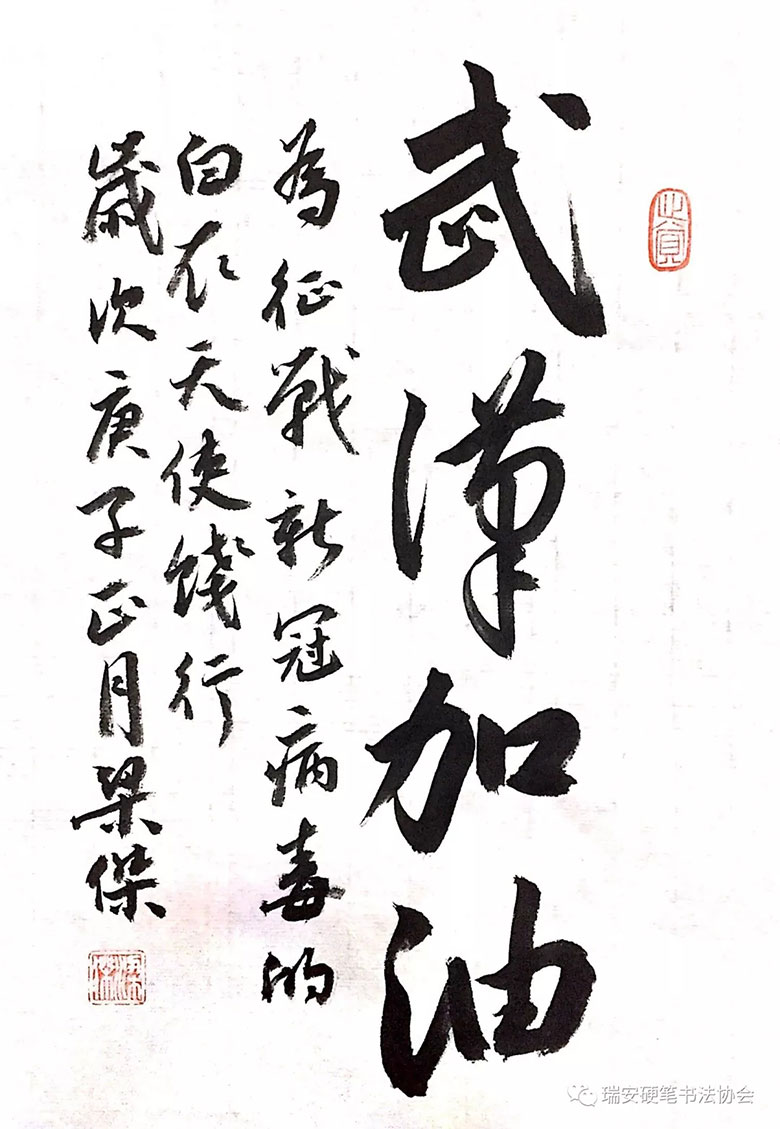 武漢加油
為征戰新冠病毒的
白衣天使餞行
歲次庚子正月梁傑
梁傑
瑞安硬笔书法协会